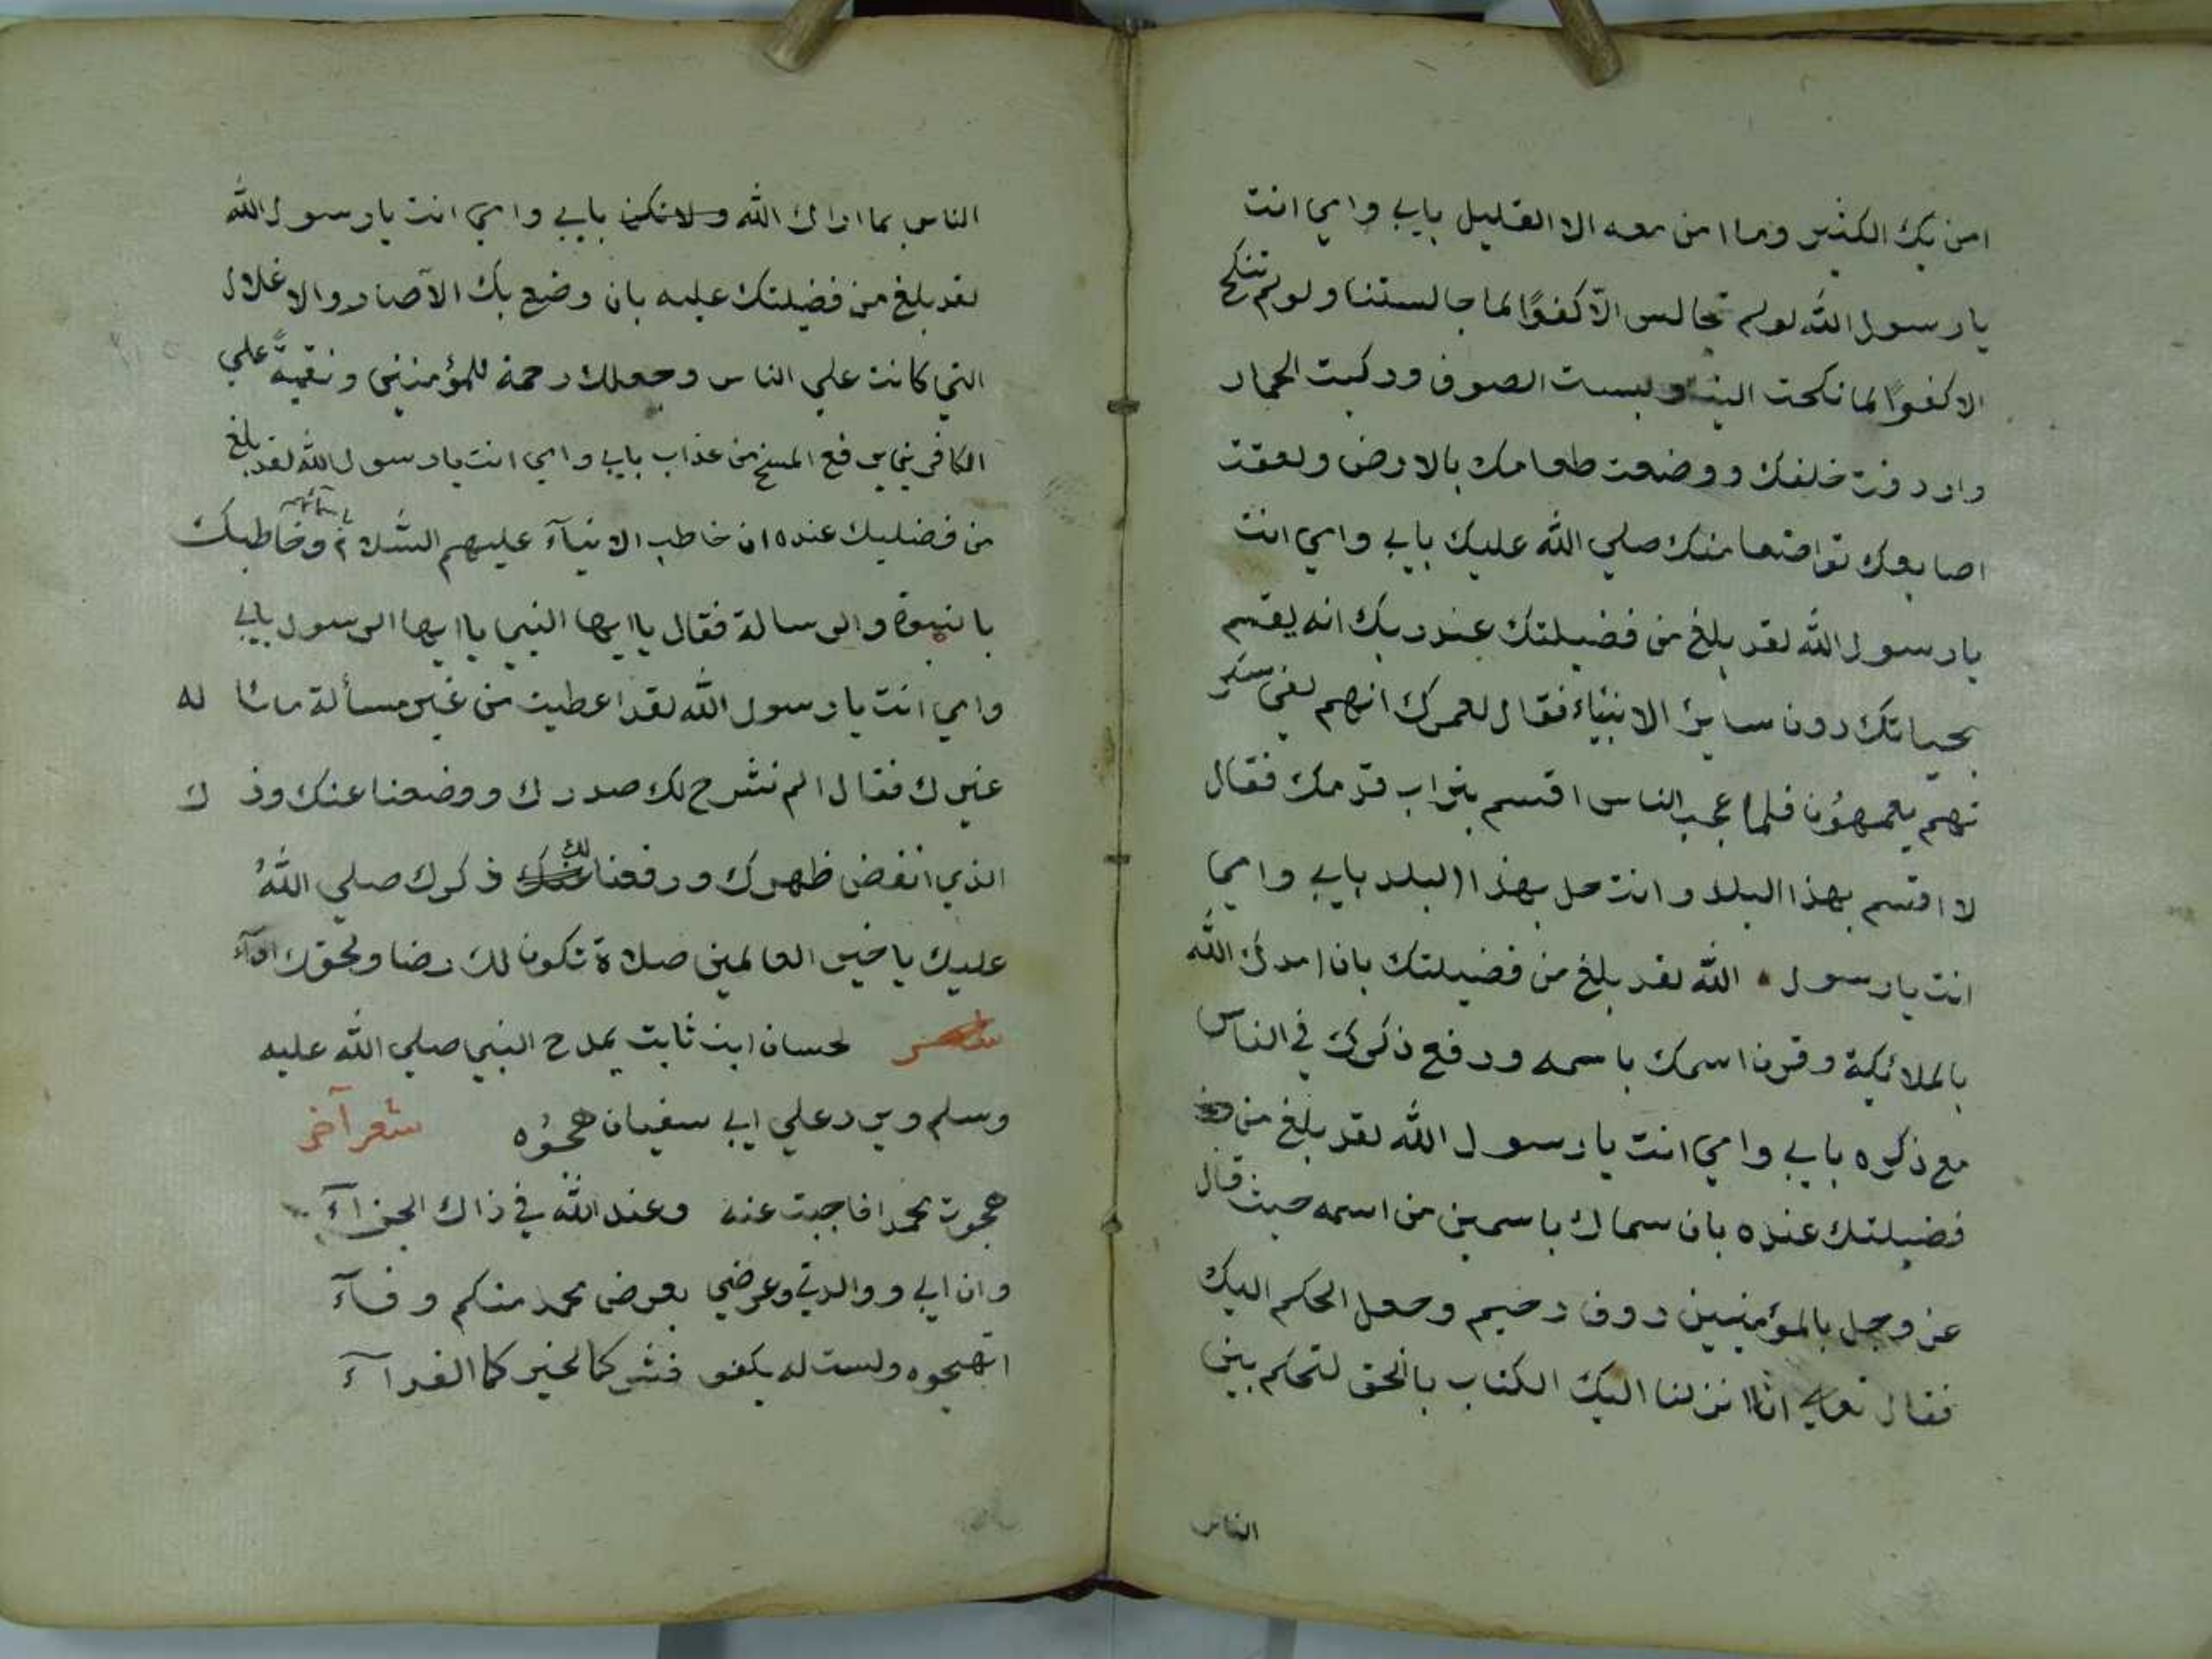 امن بك الكثير وما امن معه الا القليل بابي وامي انت
يا رسول الله لو لم تجالس الا كفوًا لما جالستنا ولو لم تنكح
الا كفوًا لما نكحت الينا ولبست الصوف وركبت الحمار
واردفت خلفك ووضعت طعامك بالارض ولعقت
اصابعك تواضعا منك صلي الله عليك بابي وامي انت
يا رسول الله لقد بلغ من فضيلتك عند ربك انه يقسم
بحياتك دون ساير الانبياء فقال لعمرك انهم لفي سكر
تهم يعمهون فلما عجب الناس اقسم بتراب قدمك فقال
لا اقسم بهذا البلد وانت حل بهذا البلد بابي وامي
انت يا رسول الله لقد بلغ من فضيلتك بان امدك الله
بالملائكة وقرن اسمك باسمه ورفع ذكرك في الناس
مع ذكره بابي وامي انت يا رسول الله لقد بلغ من
فضيلتك عنده بان سماك باسمين من اسمه حيث قال
عز وجل بالمؤمنين روف رحيم وجعل الحكم اليك
فقال تعالي انا انزلنا اليك الكتاب بالحق لتحكم بين
الناس
الناس بما اراك الله ولا تكن بابي وامي انت يا رسول الله
لقد بلغ من فضيلتك عليه بان وضع بك الآصار والاغلال
التي كانت علي الناس وجعلك رحمة للمؤمنين ونقمة علي
الكافرين يرفع المسخ من عذاب بابي وامي انت يا رسول الله لقد بلغ
من فضليك عنده ان خاطب الانبيآء عليهم السلام باسمائهم وخاطبك
بالنبوة والرسالة فقال يا ايها النبي يا ايها الرسول بابي
وامي انت يا رسول الله لقد اعطيت من غير مسألة ماسا له
غيرك فقال الم نشرح لك صدرك ووضعنا عنك وذ ك
الذي انقض ظهرك ورفعنا لك ذكرك صلي الله
عليك يا خير العالمين صلاة تكون لك رضا ولحقك ادآء
لحسان ابن ثابت يمدح النبي صلي الله عليه
وسلم ويرد علي ابي سفيان هجوه شعر آخر
هجوت محمدا فاجبت عنه وعند الله في ذاك الجزآء
وان ابي ووالدتي وعرضي بعرض محمد منكم وقآء
اتهجوه ولست له بكفو فشركما لخيركما الفدآء